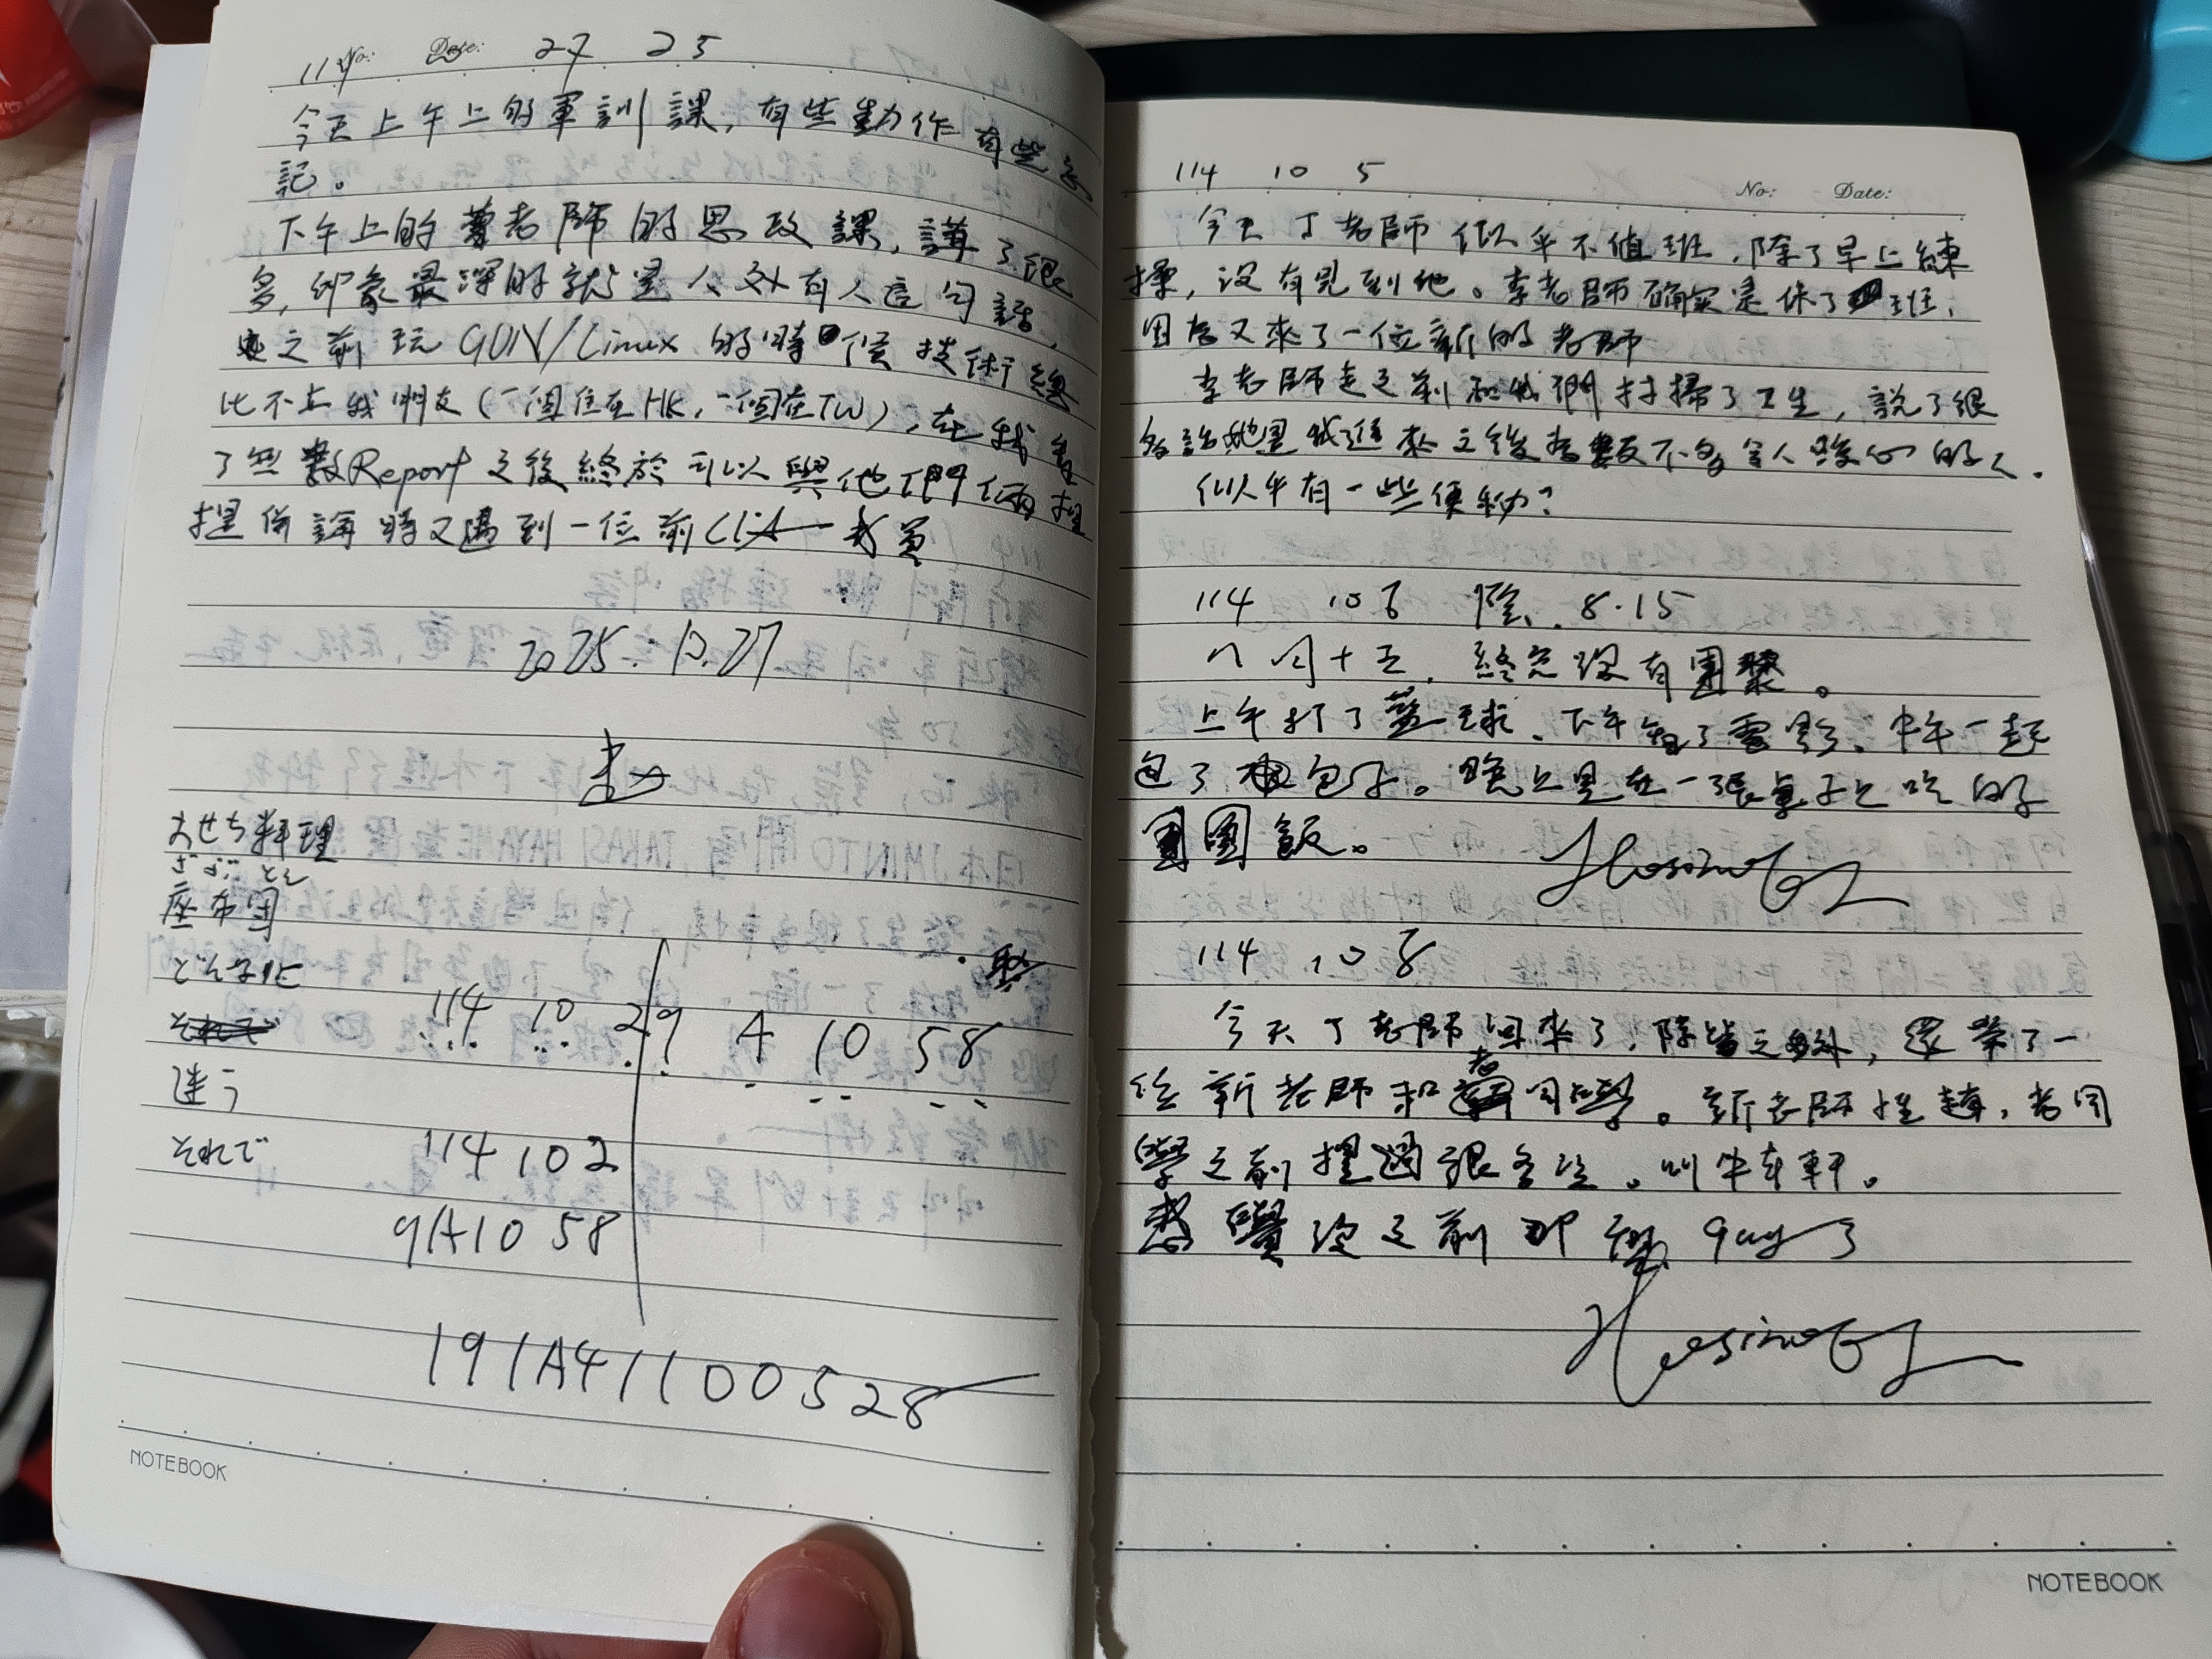 114 No: Date: 27 25
今天上午上的軍訓課,有些動作有些忘
記。
下午上的 老師的思政課,講了很
多,印象最深的就是人外有人這句話,
之前玩GUN/Linux的時候技術總
比不上我朋友(一個住在HK,一個在TW),在我看
了無數Report之後終於可以與他們倆相
提併論時又遇到一位前CIA
2025.10.27
おせち料理
ざぶ とん
座布団
どんなに
それで
迷う
それで
114 10 29 A 10 58
114 102
9A10 58
191A41100528
NOTEBOOK
114 10 5
No: Date:
今天丁老師似乎不值班,除了早上練
操,沒有見到他。李老師确实是休了班,
因为又來了一位新的老師
李老師走之前和我們打掃了卫生,說了很
多話她是我進來之後為數不多令人暖心的人.
似乎有一些便秘?
114 10 6 陰. 8.15
八月十五,終究沒有團聚。
上午打了藍球、下午看了電影、中午一起
包了包子。晚上是在一張桌子上吃的
團圓飯。
114 10 8
今天丁老師回來了,除此之外,還來了一
位新老師和老同學。新老師姓趙,老同
學之前提過很多次。叫牛 軒。
感覺沒之前那樣gay了
NOTEBOOK